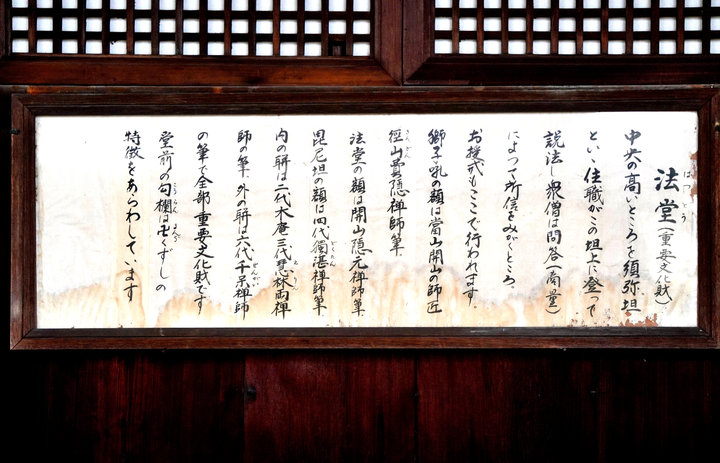 法堂(重要文化財)
はつとう
中央の高いところを須弥坛
といゝ住職がこの坦上に登って
説法し衆僧は問答(商量)
によって所信をみがくところ、
お授戒もここで行われます。
獅子吼の額は当山開山の師匠
径山費隠禅師筆
法堂の額は開山隠元禅師筆
毘尼坦の額は四代獨湛禅師筆
内の聨は二代木庵三代慧林両禅
師の筆 外の聨は六代千呆禅師
の筆で全部重要文化財です
堂前の勾欄は卍くずしの
特徴をあらわしています